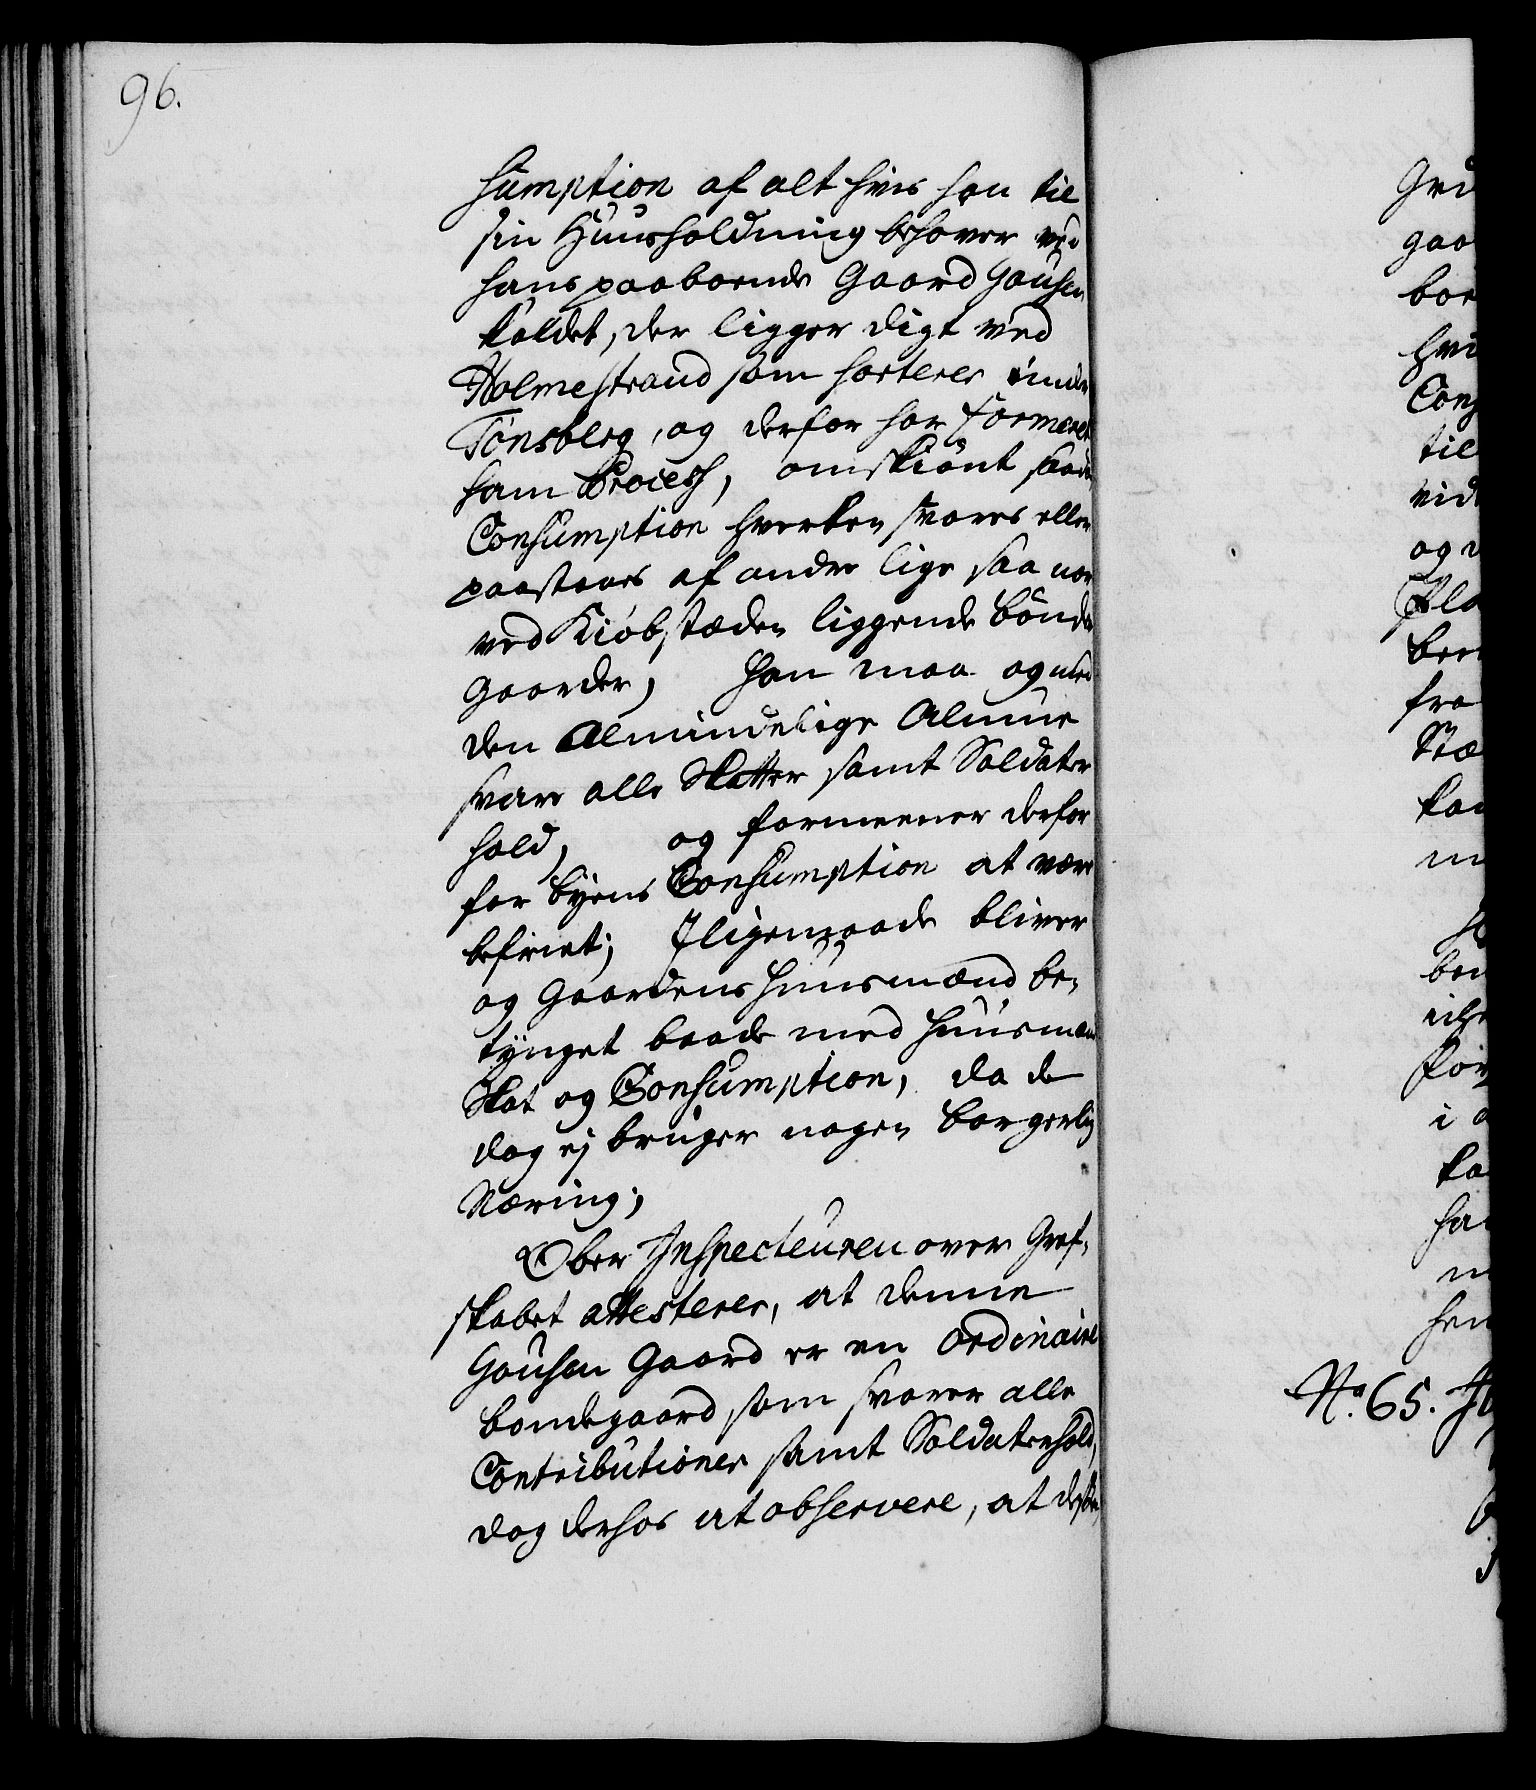 96.
sumption af alt hvis han til
sin Huusholdning behøver ved
hans paaboende Gaard Gausen
kaldet, der ligger digt ved
Holmestrand som sorterer under
Tønsberg, og derfor har formeret
ham Process, omskiønt saadan
Consumption hverken svares eller
paastaaes af andre lige saa nær
ved Kiøbstæden liggende bønder
Gaarder, han maa og med
den Almindelige Almue
svare alle Skatter samt Soldater
hold, og formeener derfor
for byens Consumption at være
befriet; Iligemaade bliver
og Gaardens Huusmænd be-
tynget baade med Huusmand
Skat og Consumption, da de
dog ej bruger nogen borgerlig
Næring;
Ober Inspecteuren over Gref-
skabet attesterer, at denne
Gausen Gaard er en ordinaire
bondegaard som svarer alle
Contributioner samt Soldaterhold,
dog derhos at observere, at
No. 65.